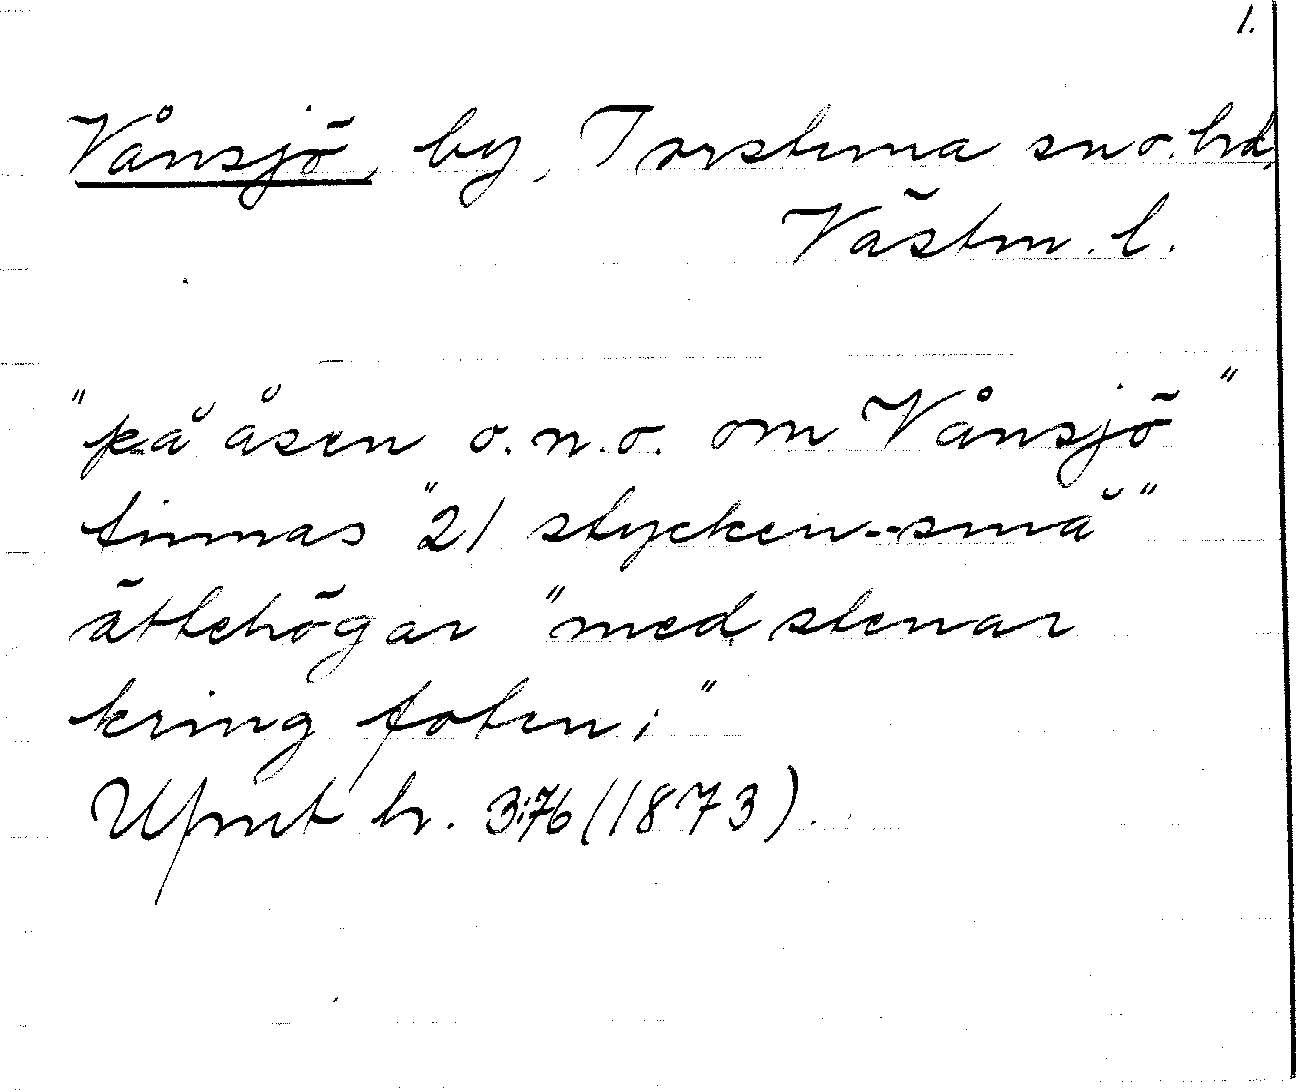 1.
Vånsjö, by, Torstuna sn o. hd,
Västm. l.
"på åsen o.n.o. om Vånsjö"
finnas "21 stycken små"
ättehögar "med stenar
kring foten;"
Upmt h. 3:76 (1873).